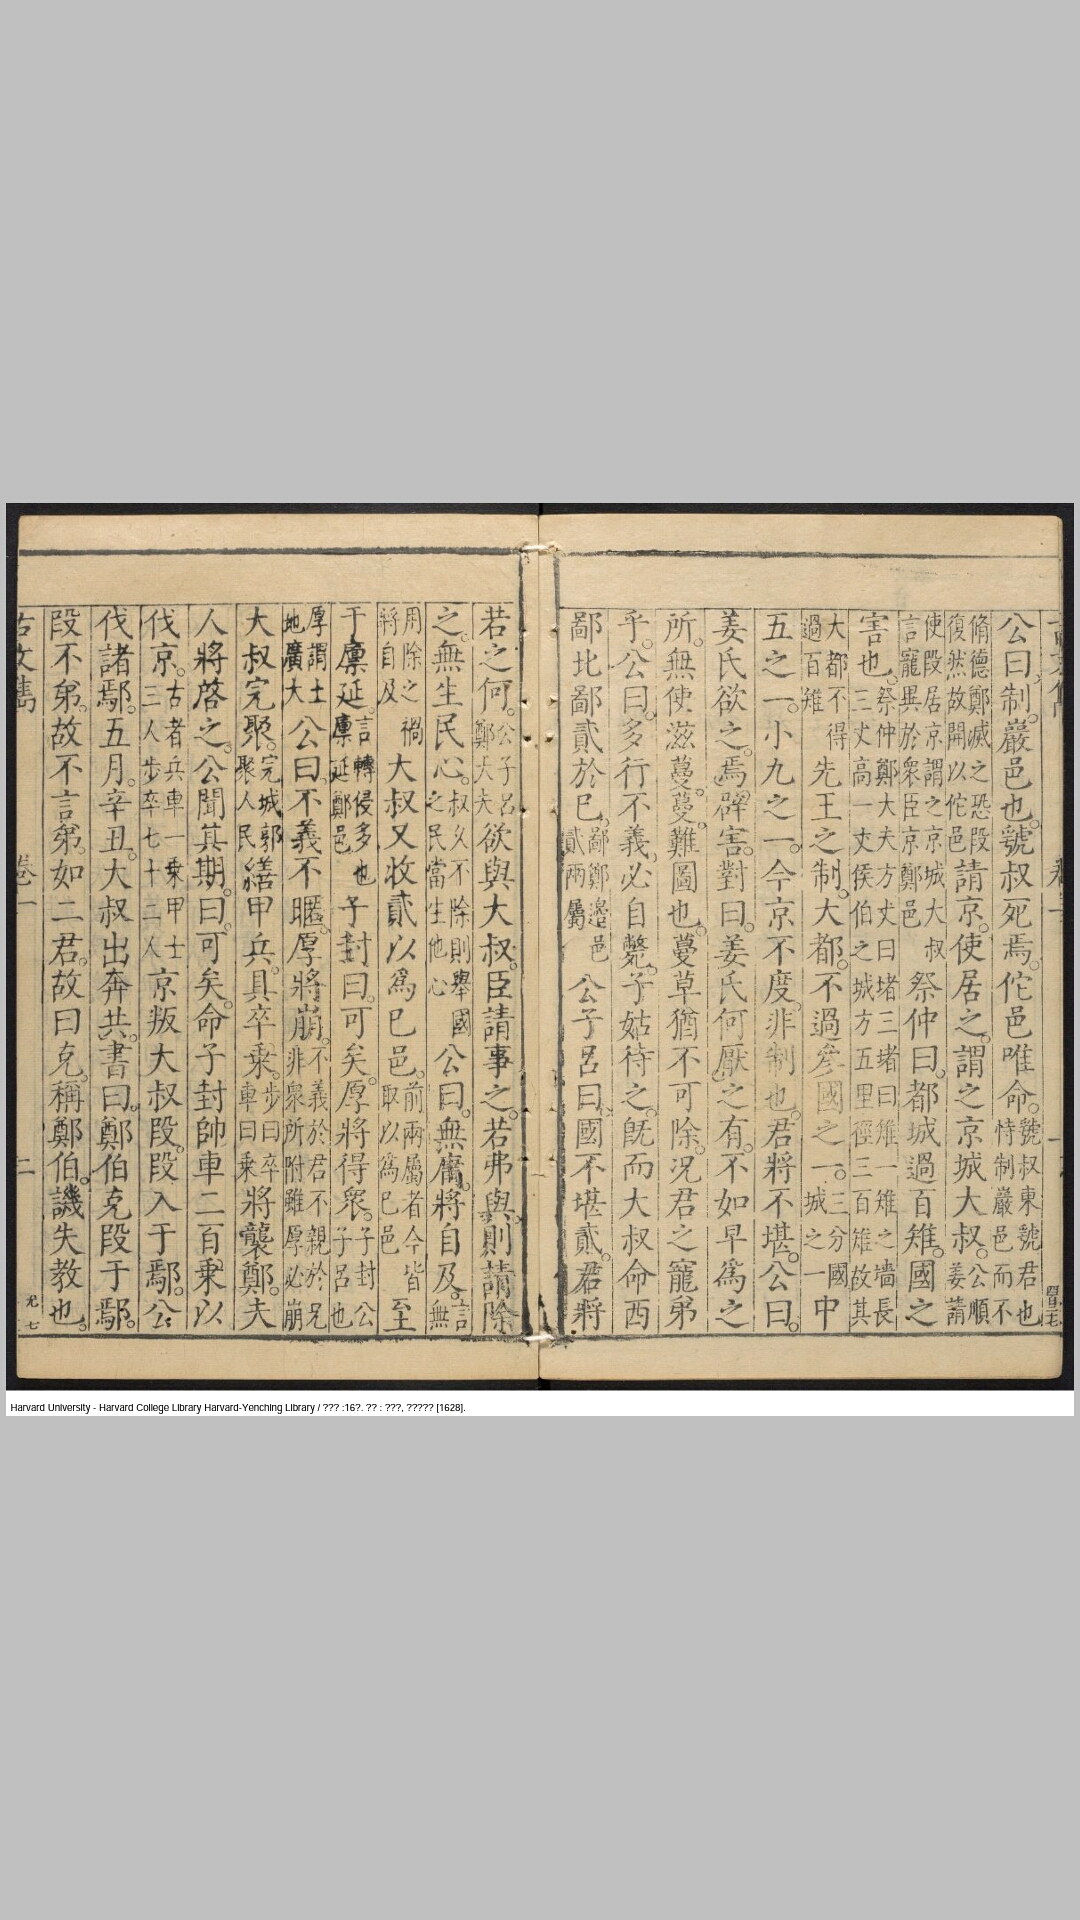 公曰制。巖邑也。虢叔死焉。佗邑唯命。虢叔東虢君也
恃制巖邑而不
脩德鄭滅之恐段
復然故開以佗邑請京。使居之。謂之京城大叔。公順
姜請
使段居京謂之京城大叔
言寵異於衆臣京鄭邑祭仲曰。都城過百雉。國之
害也。祭仲鄭大夫方丈曰堵三堵曰雉一雉之墻長
三丈高一丈侯伯之城方五里徑三百雉故其
大都不得
過百雉先王之制。大都。不過參國之一。三分國
城之一中
五之一。小九之一。今京不度。非制也。君將不堪。公曰。
姜氏欲之。焉辟害。對曰。姜氏何厭之有。不如早爲之
所。無使滋蔓。蔓。難圖也。蔓草猶不可除。況君之寵弟
乎。公曰。多行不義。必自斃。子姑待之。旣而大叔命西
鄙北鄙貳於已。鄙鄭邊邑
貳兩屬公子呂曰。國不堪貳。君將
若之何。公子呂
鄭大夫欲與大叔。臣請事之。若弗與。則請除
之。無生民心。叔久不除則舉國
之民當生他心公曰。無庸。將自及。言無
用除之禍
將自及大叔又收貳以爲已邑。前兩屬者今皆
取以爲已邑至
于廩延。言轉侵多也
廩延鄭邑子封曰。可矣。厚將得衆。子封公
子呂也
厚謂土
地廣大公曰。不義不暱。厚將崩。不義於君不親於兄
非衆所附雖厚必崩
大叔完聚。完城郭
聚人民繕甲兵。具卒乘。步曰卒
車曰乘將襲鄭。夫
人將啓之。公聞其期。曰。可矣。命子封帥車二百乘以
伐京。古者兵車一乘甲士
三人步卒七十二人京叛大叔段。段入于鄢。公
伐諸鄢。五月。辛丑。大叔出奔共。書曰。鄭伯克段于鄢。
段不弟。故不言弟。如二君。故曰克。稱鄭伯。譏失教也。
卷一
二
Harvard University - Harvard College Library Harvard-Yenching Library / ??? :16?. ?? : ???, ????? [1628].